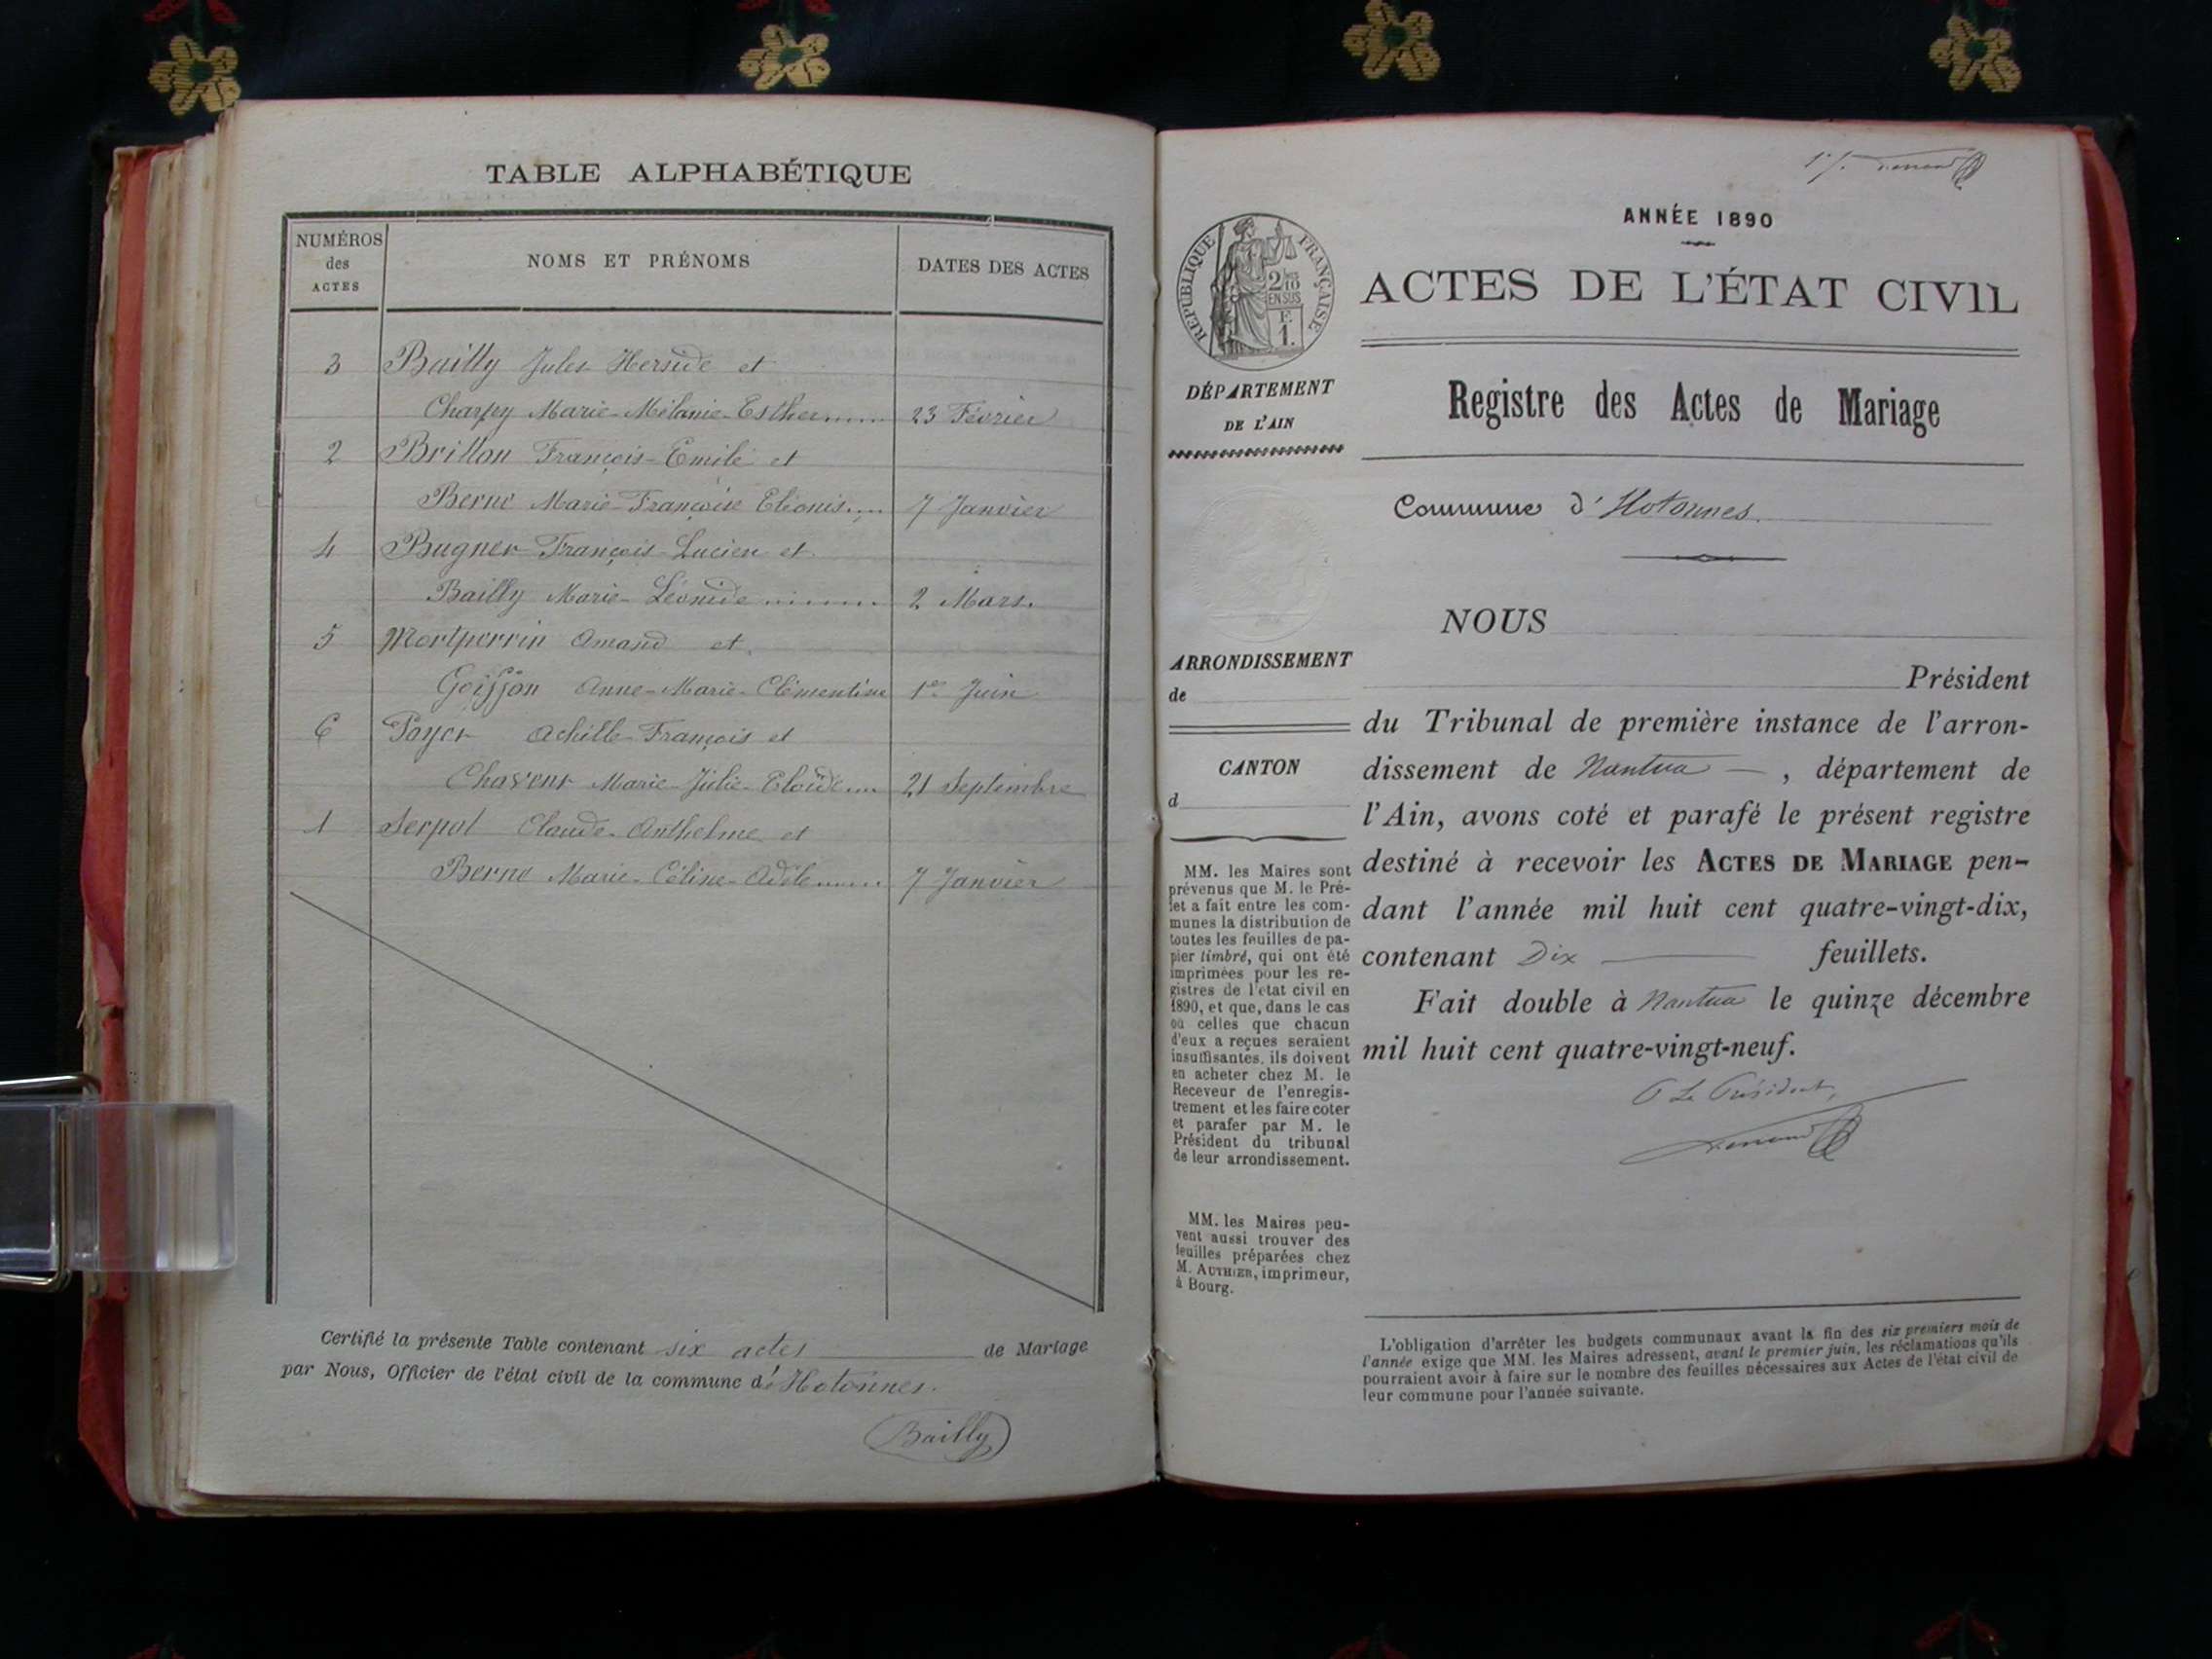 TABLE ALPHABÉTIQUE
NUMÉROS des ACTES
NOMS ET PRÉNOMS
DATES DES ACTES
3 Bailly Jules et
Charpy Marie-Mélanie-Esther 23 Février
2 Brillon François-Emile et
Berne Marie Françoise 7 Janvier
4 Bugner François-Lucien et
Bailly Marie-Léonide 2 Mars.
5 Montperrin Amand et
Goiffon Anne-Marie-Clémentine 1er Juin
6 Poyer Achille-François et
Chavent Marie-Julie-Eloïde 21 Septembre
1 Serpol Claude-Anthelme et
Berne Marie-Céline-Adèle 7 Janvier
Certifié la présente Table contenant six actes de Mariage
par Nous, Officier de l'état civil de la commune d'Hotonnes.
Bailly
ANNÉE 1890
RÉPUBLIQUE FRANÇAISE
2/10
EN SUS
F.
1.
ACTES DE L'ÉTAT CIVIL
DÉPARTEMENT
DE L'AIN
Registre des Actes de Mariage
Commune d'Hotonnes.
NOUS
ARRONDISSEMENT
de
Président
du Tribunal de première instance de l'arron-
dissement de Nantua, département de
l'Ain, avons coté et parafé le présent registre
destiné à recevoir les ACTES DE MARIAGE pen-
dant l'année mil huit cent quatre-vingt-dix,
contenant Dix feuillets.
Fait double à Nantua le quinze décembre
mil huit cent quatre-vingt-neuf.
Le Président,
CANTON
d
MM. les Maires sont
prévenus que M. le Pré-
fet a fait entre les com-
munes la distribution de
toutes les feuilles de pa-
pier timbré, qui ont été
imprimées pour les re-
gistres de l'état civil en
1890, et que, dans le cas
où celles que chacun
d'eux a reçues seraient
insuffisantes, ils doivent
en acheter chez M. le
Receveur de l'enregis-
trement et les faire coter
et parafer par M. le
Président du tribunal
de leur arrondissement.
MM. les Maires peu-
vent aussi trouver des
feuilles préparées chez
M. AUTHIER, imprimeur,
à Bourg.
L'obligation d'arrêter les budgets communaux avant la fin des six premiers mois de
l'année exige que MM. les Maires adressent, avant le premier juin, les réclamations qu'ils
pourraient avoir à faire sur le nombre des feuilles nécessaires aux Actes de l'état civil de
leur commune pour l'année suivante.